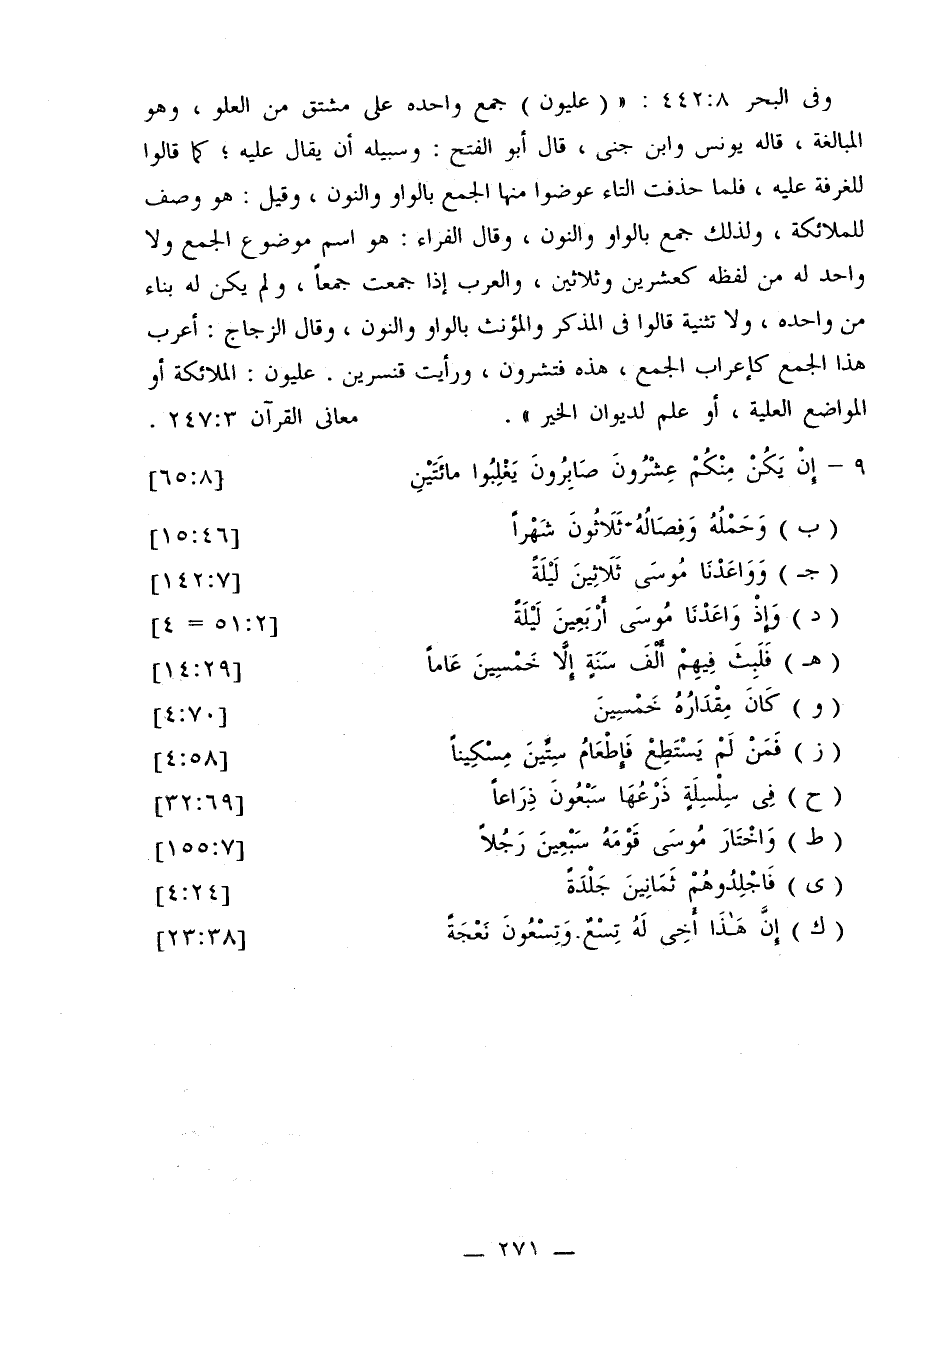 وفى البحر ٤٤٢:٨ : « ( عليون ) جمع واحده على مشتق من العلو ، وهو
المبالغة ، قاله يونس وابن جنى ، قال أبو الفتح : وسبيله أن يقال عليه ؛ كما قالوا
للغرفة عليه ، فلما حذفت التاء عوضوا منها الجمع بالواو والنون ، وقيل : هو وصف
للملائكة ، ولذلك جمع بالواو والنون ، وقال الفراء : هو اسم موضوع الجمع ولا
واحد له من لفظه كعشرين وثلاثين ، والعرب إذا جمعت جمعاً ، ولم يكن له بناء
من واحده ، ولا تثنية قالوا فى المذكر والمؤنث بالواو والنون ، وقال الزجاج : أعرب
هذا الجمع كإعراب الجمع ، هذه فتشرون ، ورأيت قنسرين . عليون : الملائكة أو
المواضع العلية ، أو علم لديوان الخير » . معانى القرآن ٢٤٧:٣ .
٩ – إِنْ يَكُنْ مِنْكُمْ عِشْرُونَ صَابِرُونَ يَغْلِبُوا مائَتَيْنِ [٦٥:٨]
( ب ) وَحَمْلُهُ وَفِصَالُهُ ثَلَاثُونَ شَهْراً [١٥:٤٦]
( جـ ) وَوَاعَدْنَا مُوسَى ثَلَاثِينَ لَيْلَةً [١٤٢:٧]
( د ) وَإِذْ وَاعَدْنَا مُوسَى أَرْبَعِينَ لَيْلَةً [٥١:٢ = ٤]
( هـ ) فَلَبِثَ فِيهِمْ أَلْفَ سَنَةٍ إِلَّا خَمْسِينَ عَاماً [١٤:٢٩]
( و ) كَانَ مِقْدَارُهُ خَمْسِينَ [٤:٧٠]
( ز ) فَمَنْ لَمْ يَسْتَطِعْ فَإِطْعَامُ سِتِّينَ مِسْكِيناً [٤:٥٨]
( ح ) فِى سِلْسِلَةٍ ذَرْعُهَا سَبْعُونَ ذِرَاعاً [٣٢:٦٩]
( ط ) وَاخْتَارَ مُوسَى قَوْمَهُ سَبْعِينَ رَجُلاً [١٥٥:٧]
( ى ) فَاجْلِدُوهُمْ ثَمَانِينَ جَلْدَةً [٤:٢٤]
( ك ) إِنَّ هَـٰذَا أَخِى لَهُ تِسْعٌ وَتِسْعُونَ نَعْجَةً [٢٣:٣٨]
— ٢٧١ —